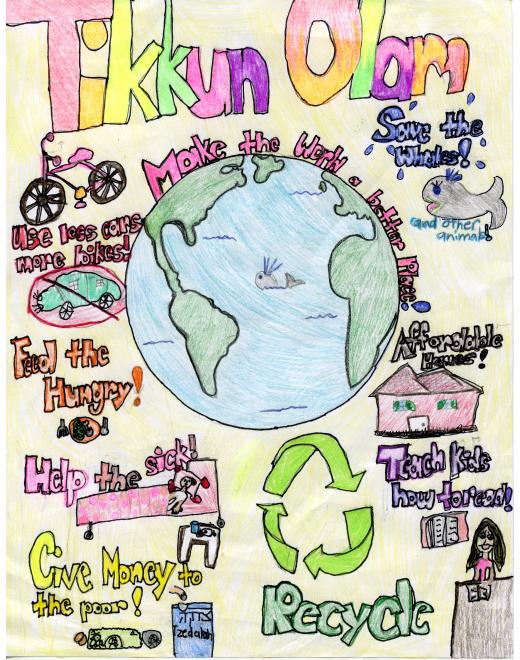 Tikkun Olam
Make the World a better Place!
Save the
Whales!
and other
animals!
Use less cars
more bikes!
Feed the
Hungry!
Affordable
Homes!
Help the sick!
Teach kids
how to read!
Give Money to
the poor!
zedakah
Recycle